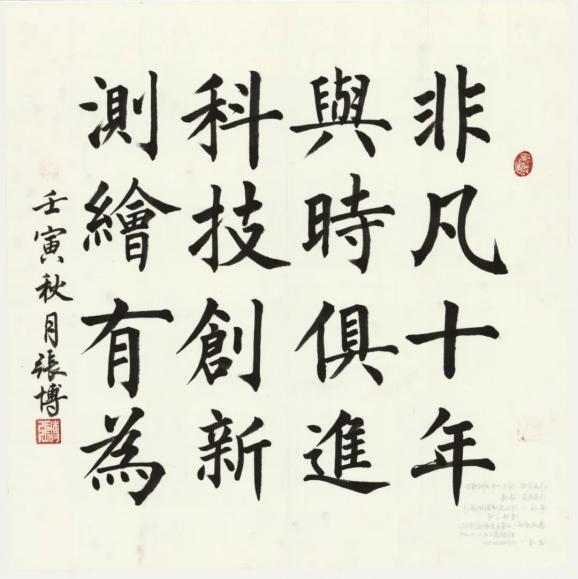 非凡十年
與時俱進
科技創新
測繪有為
壬寅秋月張博
張博